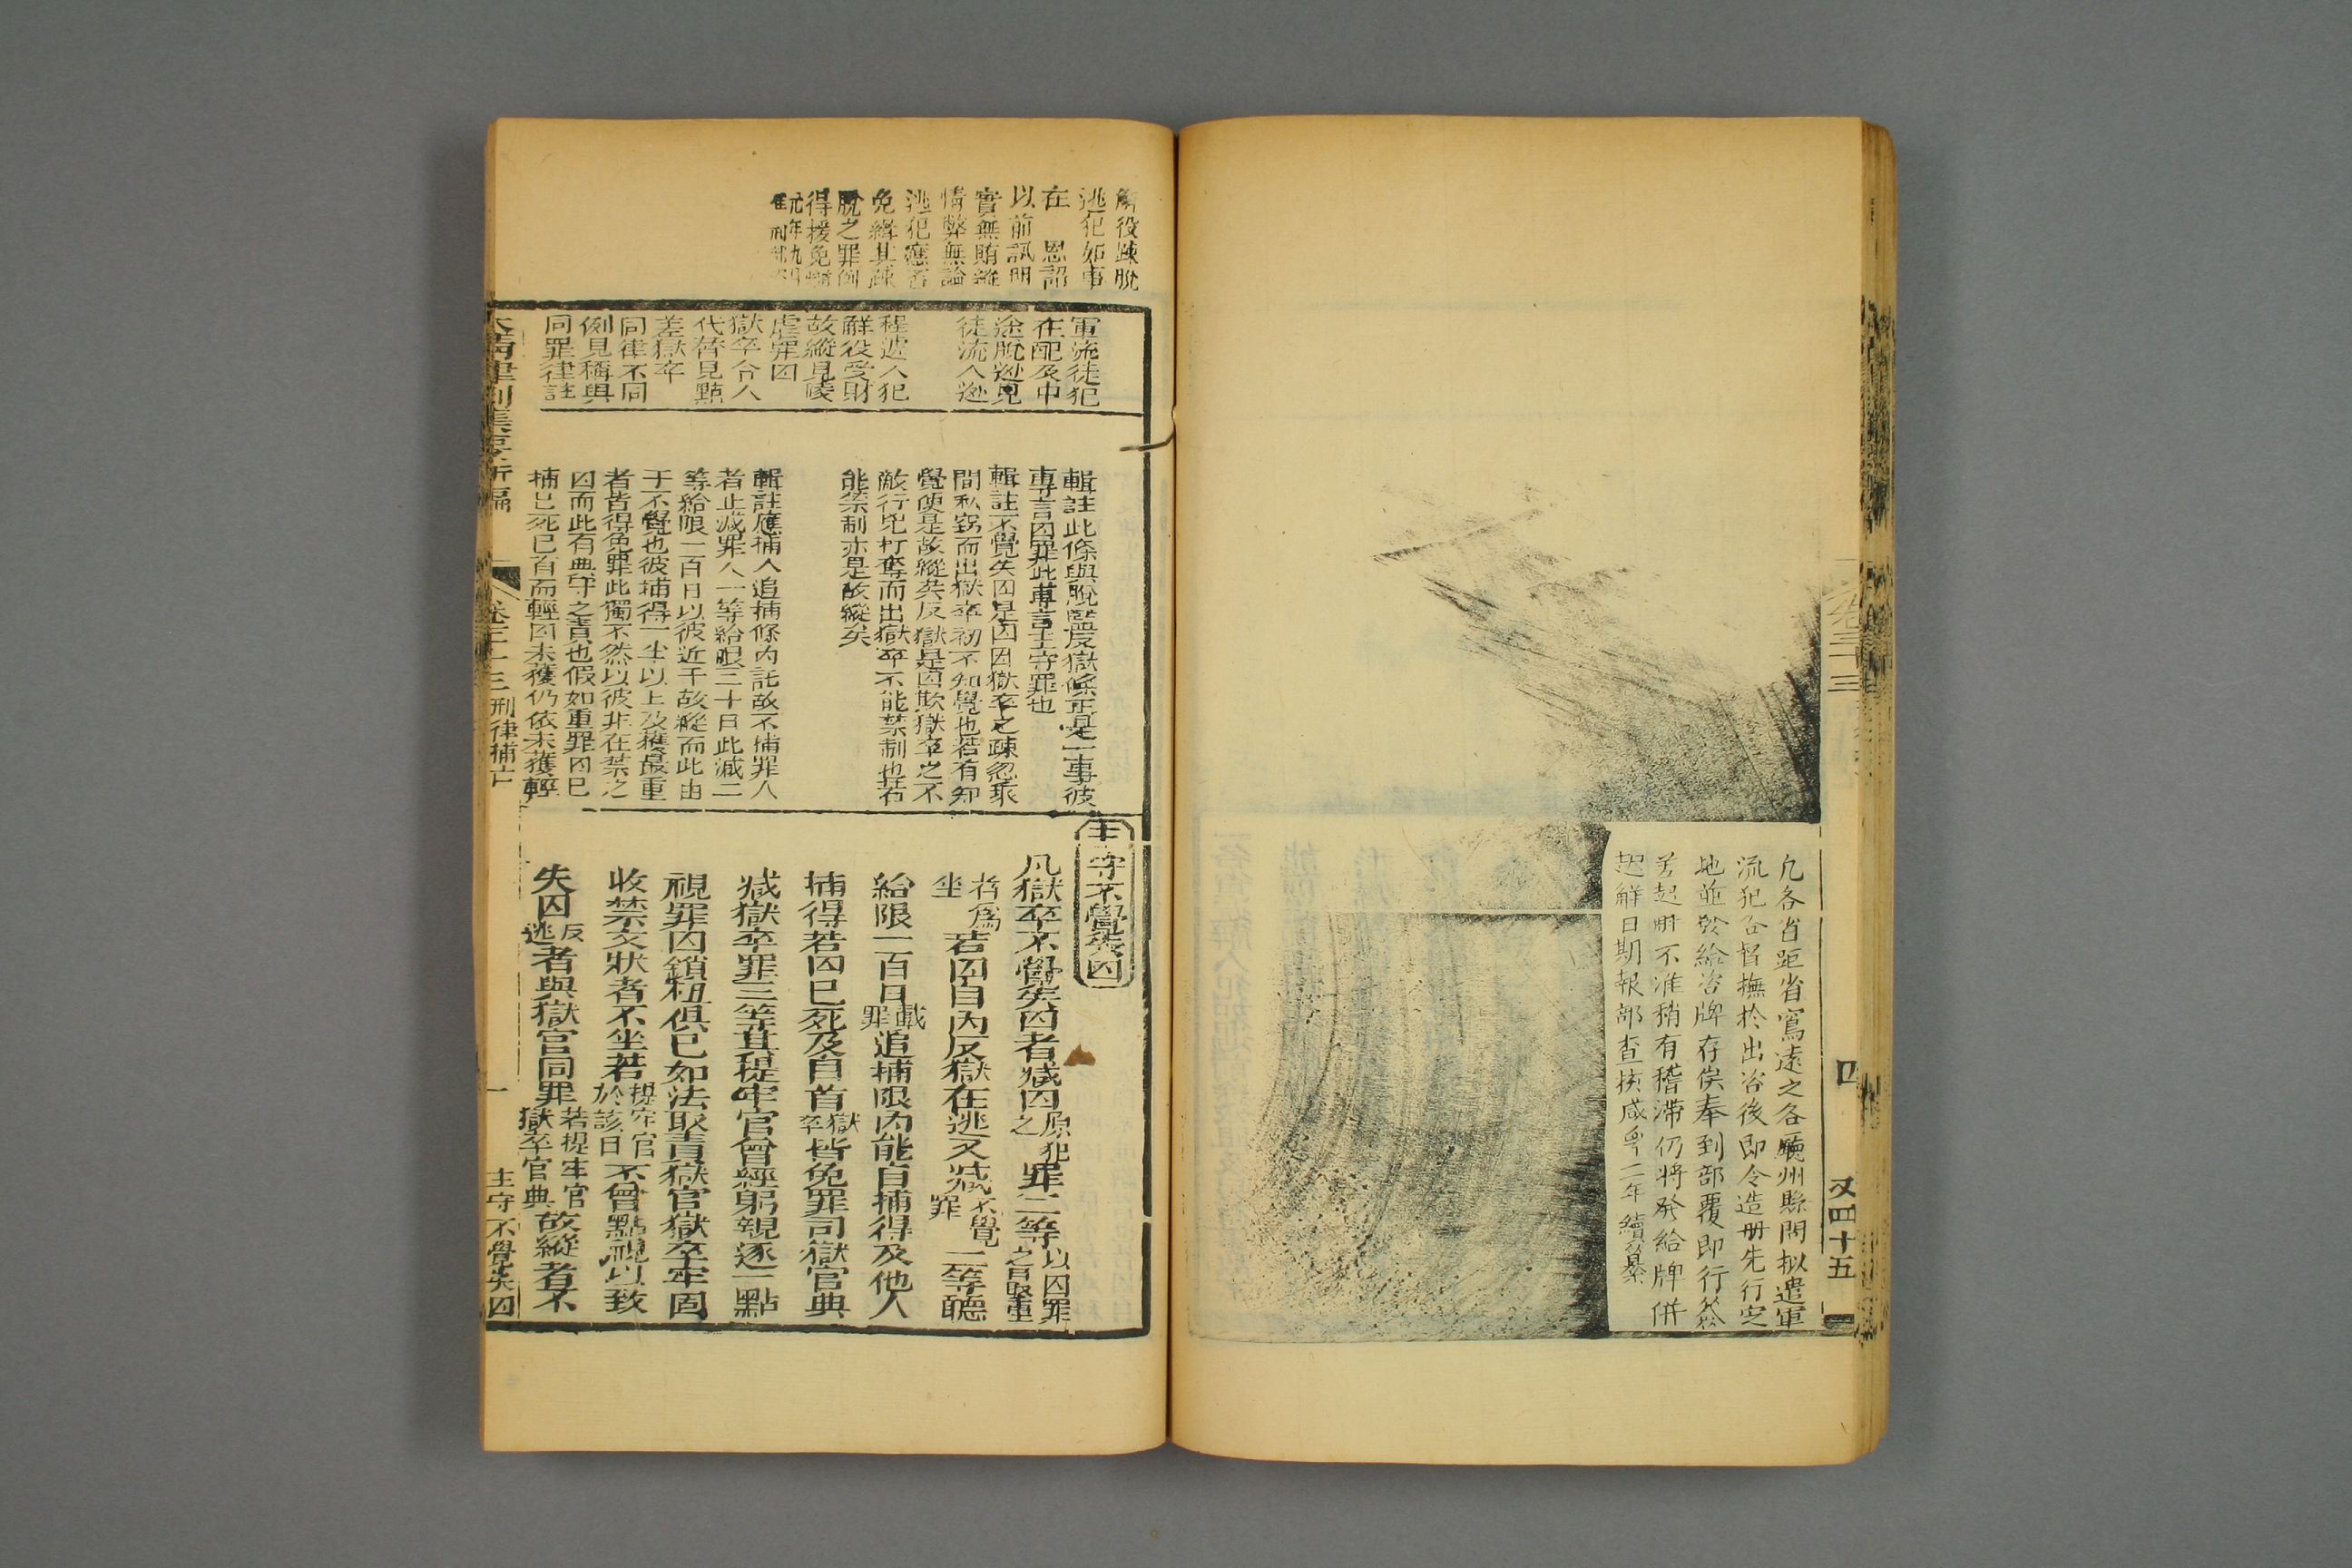 凡各省距省寫遠之各廳州縣問拟遣軍
流犯各督撫於出咨後即令造册先行定
地並發給咨牌存俟奉到部覆即行簽
差起觧不准稍有稽滯仍將發給牌併
起觧日期報部查核咸豐二年續纂
卷三十三
四
又四十五
觧役疎脫
逃犯如事
在 恩詔
以前訊明
實無賄縱
情弊無論
逃犯應否
免緝其疎
脫之罪倒
得援免
元年九月
軍流徒犯
在配及中
途脫逃見
徒流人逃
程遞人犯
觧役受財
故縱見陵
虐罪囚
獄卒令人
代替見點
差獄卒
同律不同
例見稱與
同罪律註
輯註此條與脫監反獄條正是一事彼
專言囚罪此專言主守罪也
輯註不覺失囚是囚因獄卒之疎忽乘
間私窃而出獄卒初不知覺也若有知
覺便是故縱矣反獄是囚欺獄卒之不
敵行兇打奪而出獄卒不能禁制也若
能禁制亦是故縱矣
輯註應捕人追捕條內託故不捕罪人
者止減罪人一等給限三十日此減二
等給限一百日以彼近于故縱而此由
于不覺也彼捕得一半以上及獲最重
者皆得免罪此獨不然以彼非在禁之
囚而此有典守之責也假如重罪囚已
捕已死已首而輕囚未獲仍依未獲輕
主守不覺失囚
凡獄卒不覺失囚者減囚原犯之罪二等以囚罪之最重
者爲坐若囚自內反獄在逃又減不覺罪二等聽
給限一百日戴罪追捕限內能自捕得及他人
捕得若囚已死及自首獄卒皆免罪司獄官典
減獄卒罪三等其提牢官曾經躬親逐一點
視罪囚鎖杻俱已如法取責獄官獄卒牢固
收禁文狀者不坐若提牢官於該日不曾點視以致
失囚反逃者與獄官同罪若提牢官獄卒官典故縱者不
大清律例集要新編
卷三十三 刑律捕亡
一
主守不覺失囚